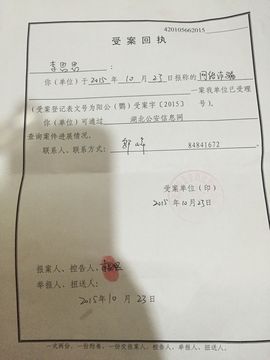 420105662015
受案回执
李思思:
你(单位)于2015年10月23日报称的网络诈骗
一案我单位已受理
(受案登记表文号为阳公(鹦)受案字〔2015〕 号)。
你(单位)可通过 湖北公安信息网
查询案件进展情况。
联系人、联系方式: 84841672
受案单位(印)
2015年10月23日
报案人、控告人、
举报人、扭送人:
2015年10月23日
一式两份,一份附卷,一份交报案人、控告人、举报人、扭送人。